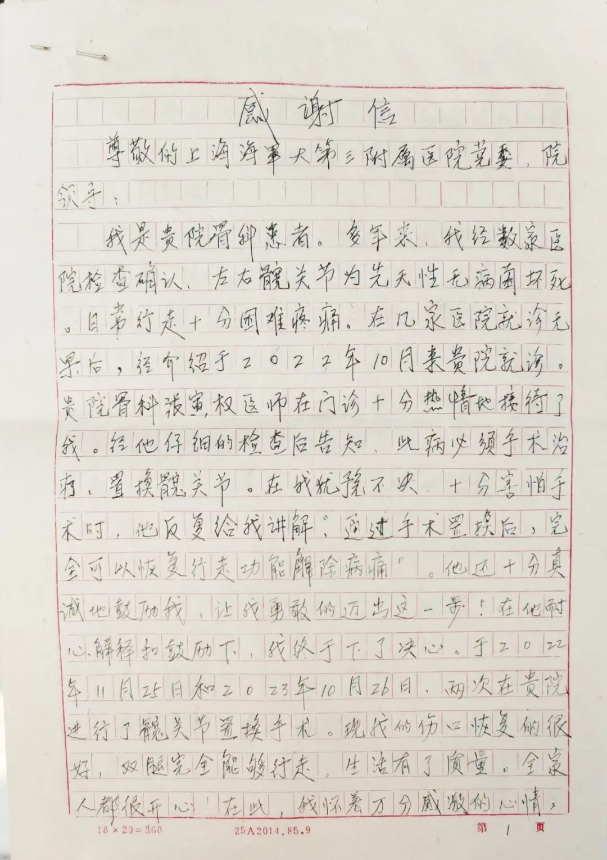 感谢信
尊敬的上海海军大第三附属医院党委、院
领导：
我是贵院骨科患者。多年来，我经数家医
院检查确认，左右髋关节为先天性无病菌坏死
。日常行走十分困难疼痛。在几家医院就诊无
果后，经介绍于2022年10月来贵院就诊。
贵院骨科张寅权医师在门诊十分热情地接待了
我。经他仔细的检查后告知，此病必须手术治
疗，置换髋关节。在我犹豫不决，十分害怕手
术时，他反复给我讲解“通过手术置换后，完
全可以恢复行走功能解除病痛”。他还十分真
诚地鼓励我，让我勇敢的迈出这一步！在他耐
心解释和鼓励下，我终于下了决心。于2022
年11月25日和2023年10月26日，两次在贵院
进行了髋关节置换手术。现我的伤口恢复的很
好，双腿完全能够行走，生活有了质量。全家
人都很开心！在此，我怀着万分感激的心情，
18×20=360 25A2014.85.9 第 1 页